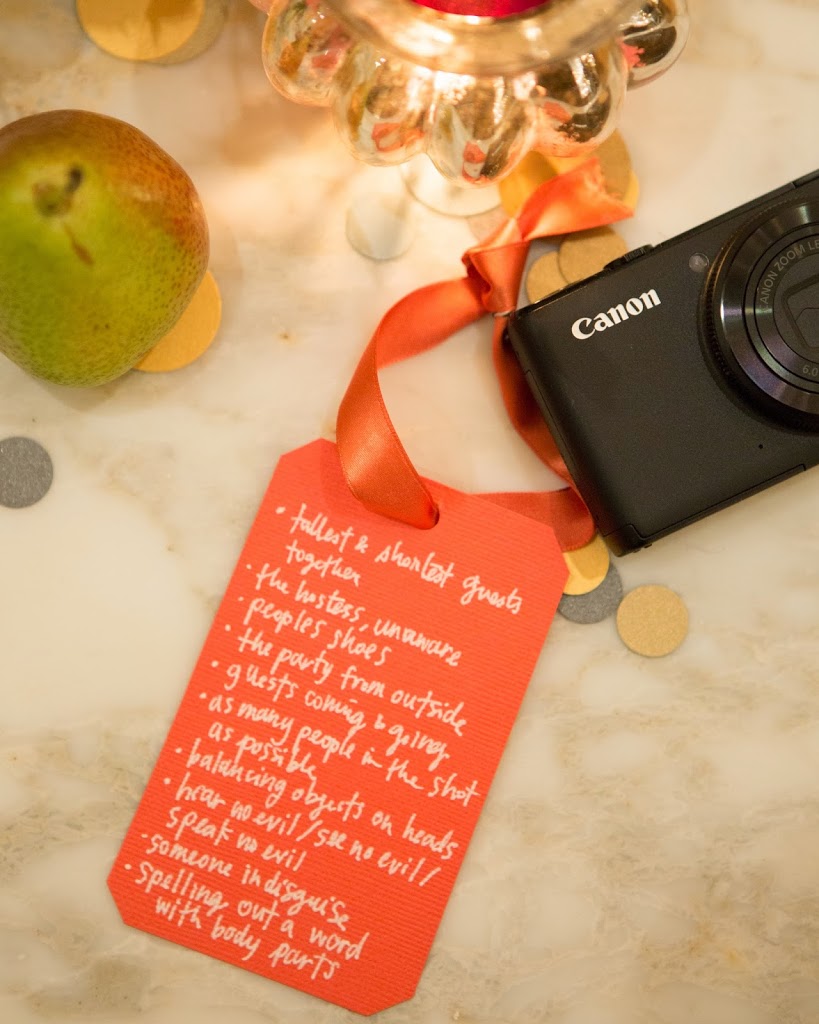 Canon
CANON ZOOM LE
6.0
• tallest & shortest guests
together
• the hostess, unaware
• peoples shoes
• the party from outside
• guests coming & going
• as many people in the shot
as possible
• balancing objects on heads
• hear no evil / see no evil /
speak no evil
• someone in disguise
• spelling out a word
with body parts